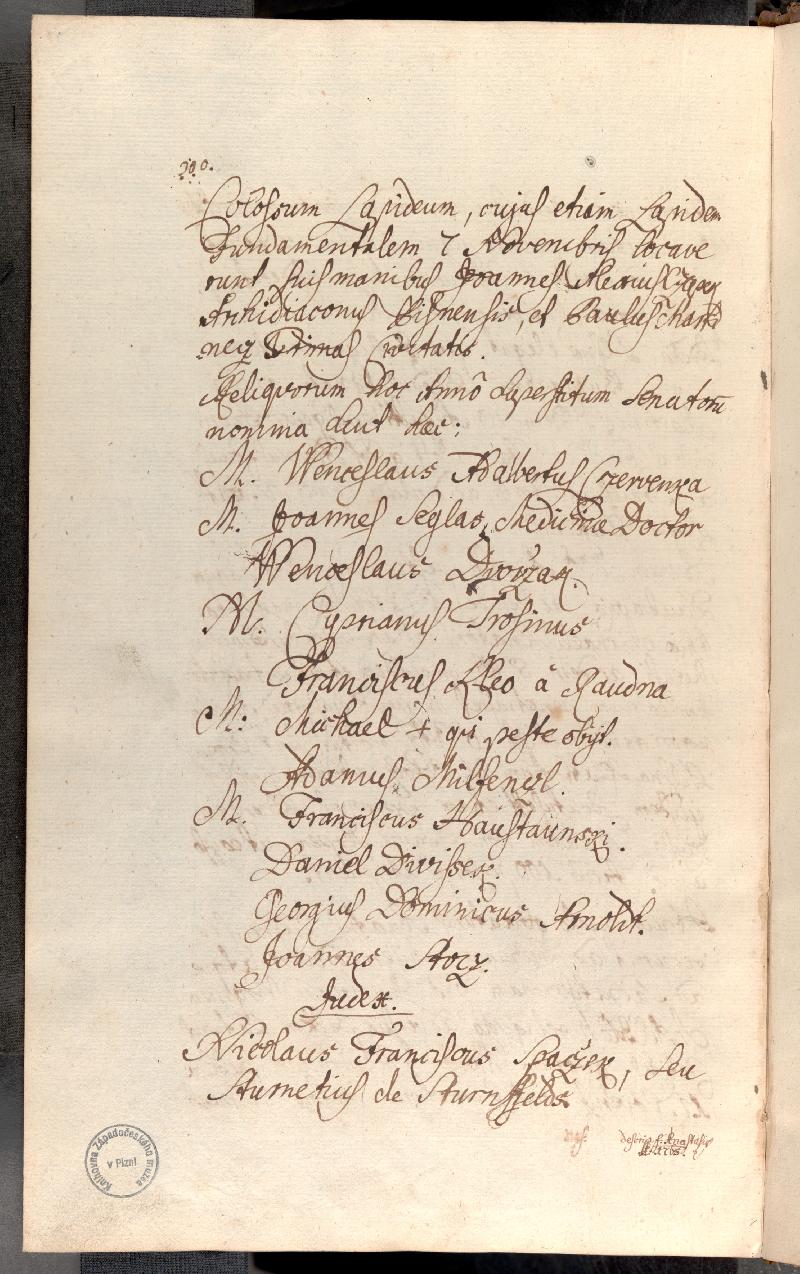 Colossum Lapideum, cujus etiam Lapidem
Fundamentalem 7 Novembris locave
runt suis manibus Joannes Alexius Czapek
Archidiaconus Pilsnensis, et Paulus
Primas Civitatis.
Reliquorum hoc Annô superstitum Senatorũ
nomina sunt haec:
M. Wenceslaus Adalbertus Czervenka
M. Joannes Seglas, Medicinae Doctor
Wenceslaus Dworzak.
M. Cyprianus Trosinus
Franciscus Leo â Raudna
M. Michael + qui peste obijt.
Adamus Milfewl.
M. Franciscus Haustaunski.
Daniel Divissek.
Georgius Dominicus Arnolt.
Joannes Story.
Judex.
Nicolaus Franciscus Spaczek, seu
Sturnetius de Sturnsfeldt
Knihovna Západočeského muzea
v Plzni